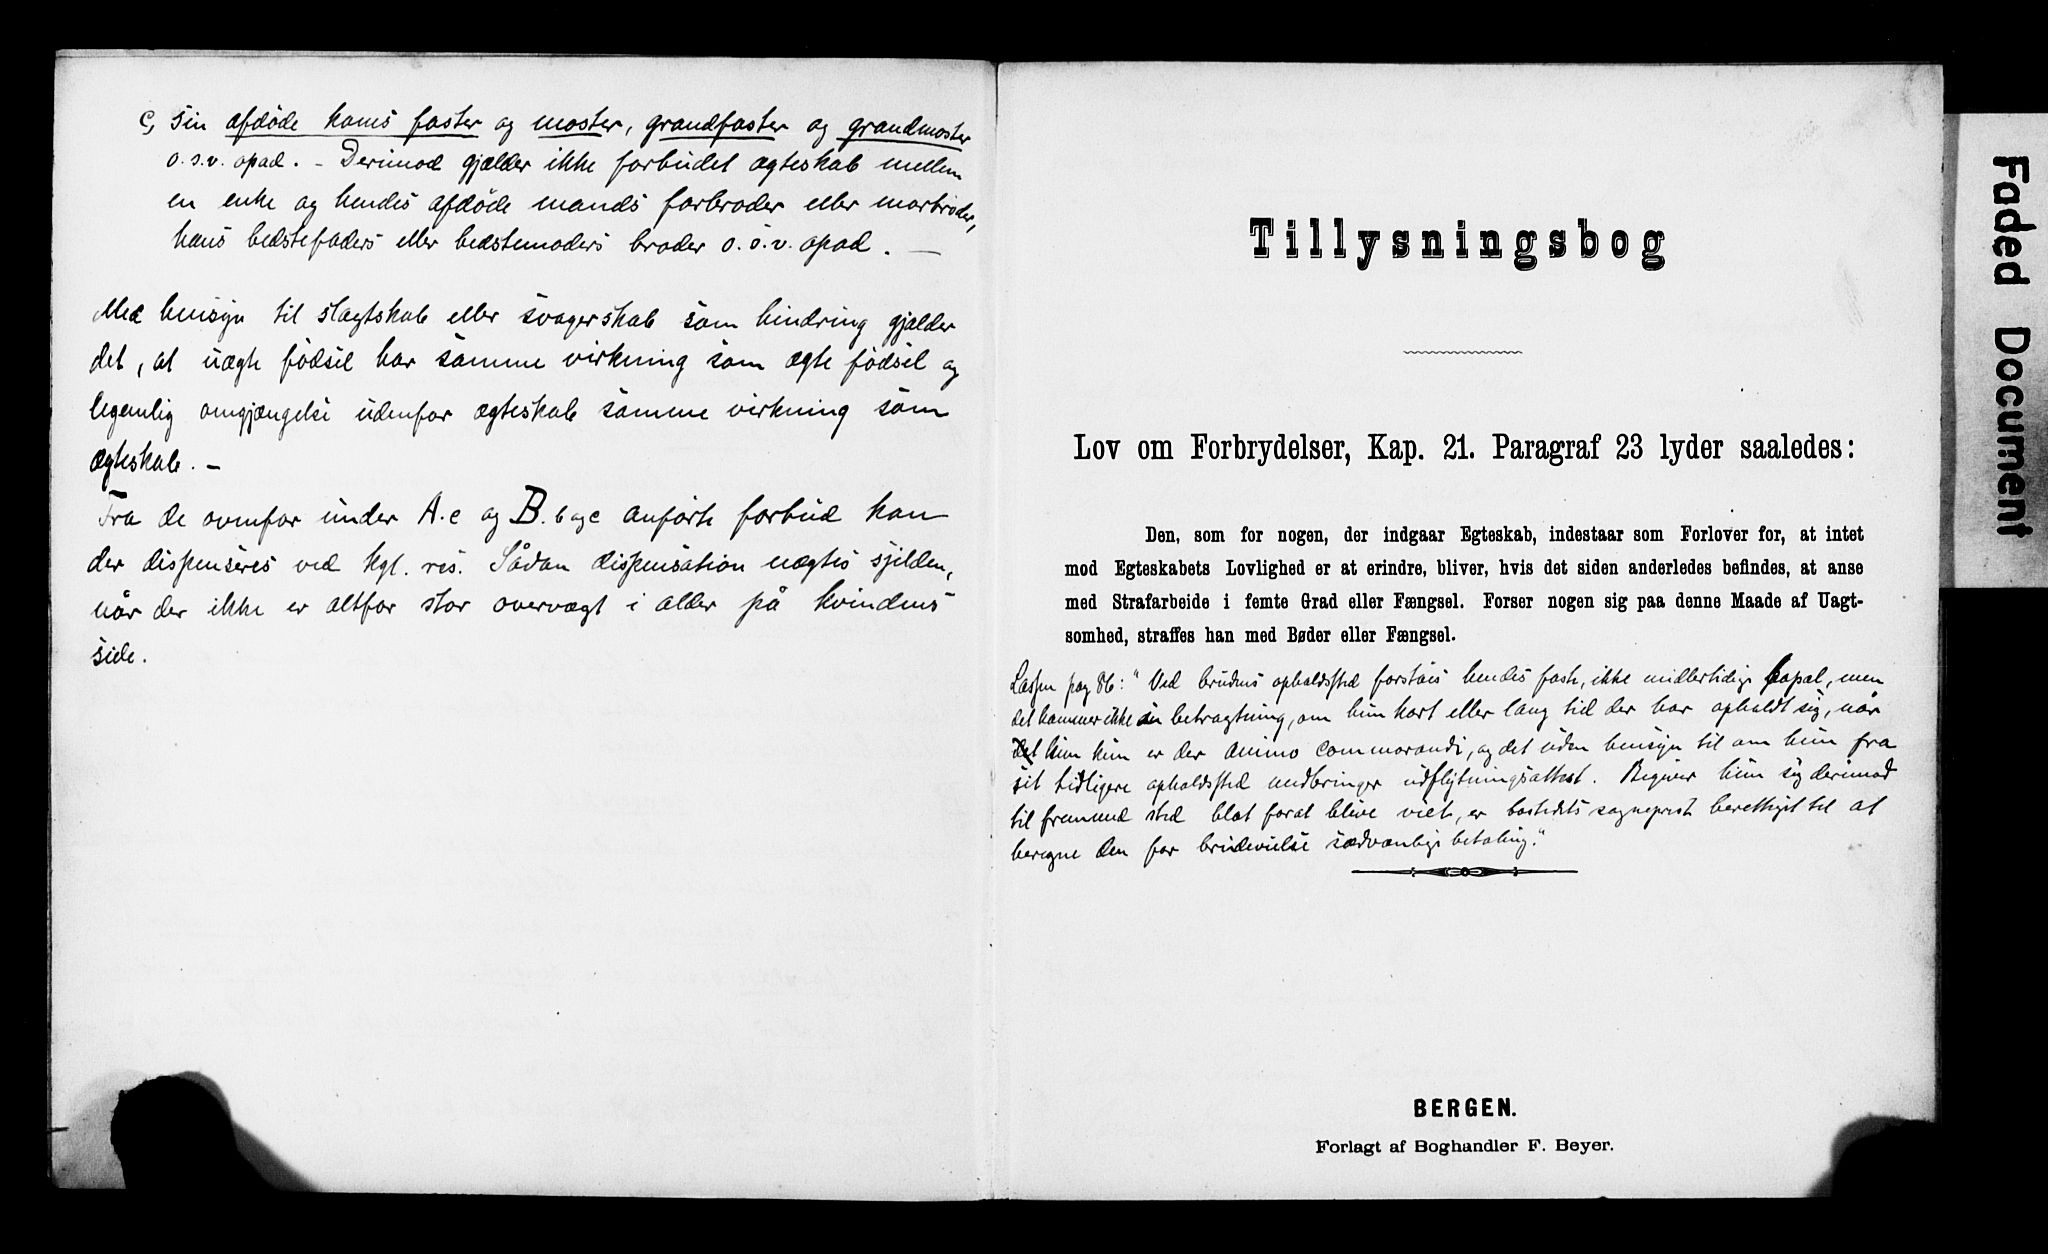 c, sin afdøde kones faster og moster, grandfaster og grandmoster
o.s.v. opad. – Derimod gjælder ikke forbudet ægteskab mellem
en enke og hendes afdøde mands farbroder eller morbroder,
hans bedstefaders eller bedstemoders broder o.s.v. opad. —
Med hensyn til slægtskab eller svogerskab som hindring gjælder
det, at uægte fødsel har samme virkning som ægte fødsel og
legemlig omgjængelse udenfor ægteskab samme virkning som
ægteskab. –
Fra de ovenfor under A.c og B.b og c anførte forbud kan
der dispenseres ved kgl. res. Sådan dispensation nægtes sjelden,
når der ikke er altfor stor overvægt i alder på kvindens
side.
Tillysningsbog
Lov om Forbrydelser, Kap. 21. Paragraf 23 lyder saaledes:
Den, som for nogen, der indgaar Egteskab, indestaar som Forlover for, at intet
mod Egteskabets Lovlighed er at erindre, bliver, hvis det siden anderledes befindes, at anse
med Strafarbeide i femte Grad eller Fængsel. Forser nogen sig paa denne Maade af Uagt-
somhed, straffes han med Bøder eller Fængsel.
Lassen pag 86: "Ved brudens opholdssted forståes hendes faste, ikke midlertidige bopæl, men
det kommer ikke in betragtning, om hun kort eller lang tid der har opholdt sig, når
det kun hun er der animo commorandi, og det uden hensyn til om hun fra
sit tidligere opholdssted medbringer udflytningsattest. Begiver hun sig derimod
til fremmed sted blot forat blive viet, er bostedets sogneprest berettiget til at
beregne den for brudevielse sædvanlige betaling."
BERGEN.
Forlagt af Boghandler F. Beyer.
Faded Document